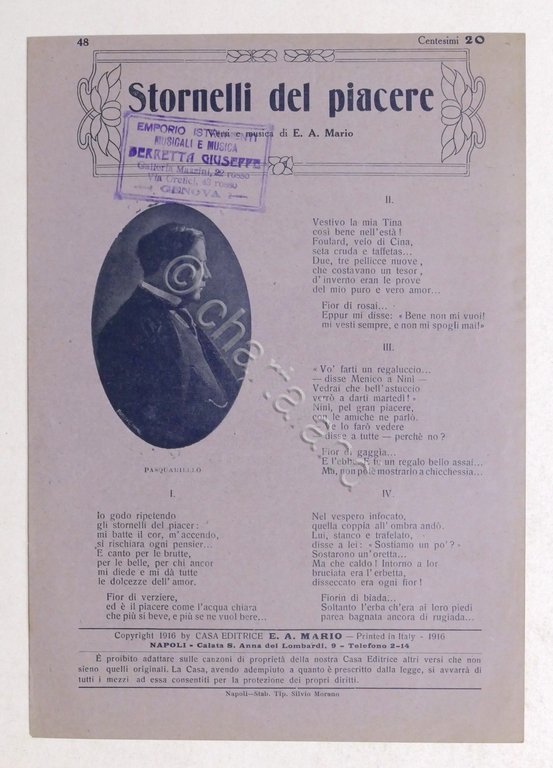 48
Centesimi 20
Stornelli del piacere
Versi e musica di E. A. Mario
EMPORIO ISTRUMENTI
MUSICALI E MUSICA
BERRETTA GIUSEPPE
Galleria Mazzini, 22 rosso
Via Orefici, 43 rosso
— GENOVA —
PASQUARIELLO
I.
Io godo ripetendo
gli stornelli del piacer:
mi batte il cor, m'accendo,
si rischiara ogni pensier...
E canto per le brutte,
per le belle, per chi ancor
mi diede e mi dà tutte
le dolcezze dell'amor.
Fior di verziere,
ed è il piacere come l'acqua chiara
che più si beve, e più se ne vuol bere...
II.
Vestivo la mia Tina
così bene nell'està!
Foulard, velo di Cina,
seta cruda e taffetas...
Due, tre pellicce nuove,
che costavano un tesor,
d'inverno eran le prove
del mio puro e vero amor...
Fior di rosai...
Eppur mi disse: « Bene non mi vuoi!
mi vesti sempre, e non mi spogli mai!»
III.
« Vo' farti un regaluccio...
— disse Menico a Ninì —
Vedrai che bell'astuccio
verrò a darti martedì! »
Ninì, pel gran piacere,
con le amiche ne parlò.
e lo farò vedere
disse a tutte — perchè no?
Fior di gaggìa...
E l'ebbe. E fu un regalo bello assai...
Ma, non potè mostrarlo a chicchessia...
IV.
Nel vespero infocato,
quella coppia all'ombra andò.
Lui, stanco e trafelato,
disse a lei: « Sostiamo un po'? »
Sostarono un'oretta...
Ma che caldo! Intorno a lor
bruciata era l'erbetta,
disseccato era ogni fior!
Fiorin di biada...
Soltanto l'erba ch'era ai loro piedi
parea bagnata ancora di rugiada...
Copyright 1916 by CASA EDITRICE E. A. MARIO — Printed in Italy - 1916
NAPOLI - Calata S. Anna dei Lombardi, 9 - Telefono 2-14
È proibito adattare sulle canzoni di proprietà della nostra Casa Editrice altri versi che non
sieno quelli originali. La Casa, avendo adempiuto a quanto è prescritto dalla legge, si avvarrà di
tutti i mezzi ad essa consentiti per la protezione dei propri diritti.
Napoli—Stab. Tip. Silvio Morano
© charta.arc